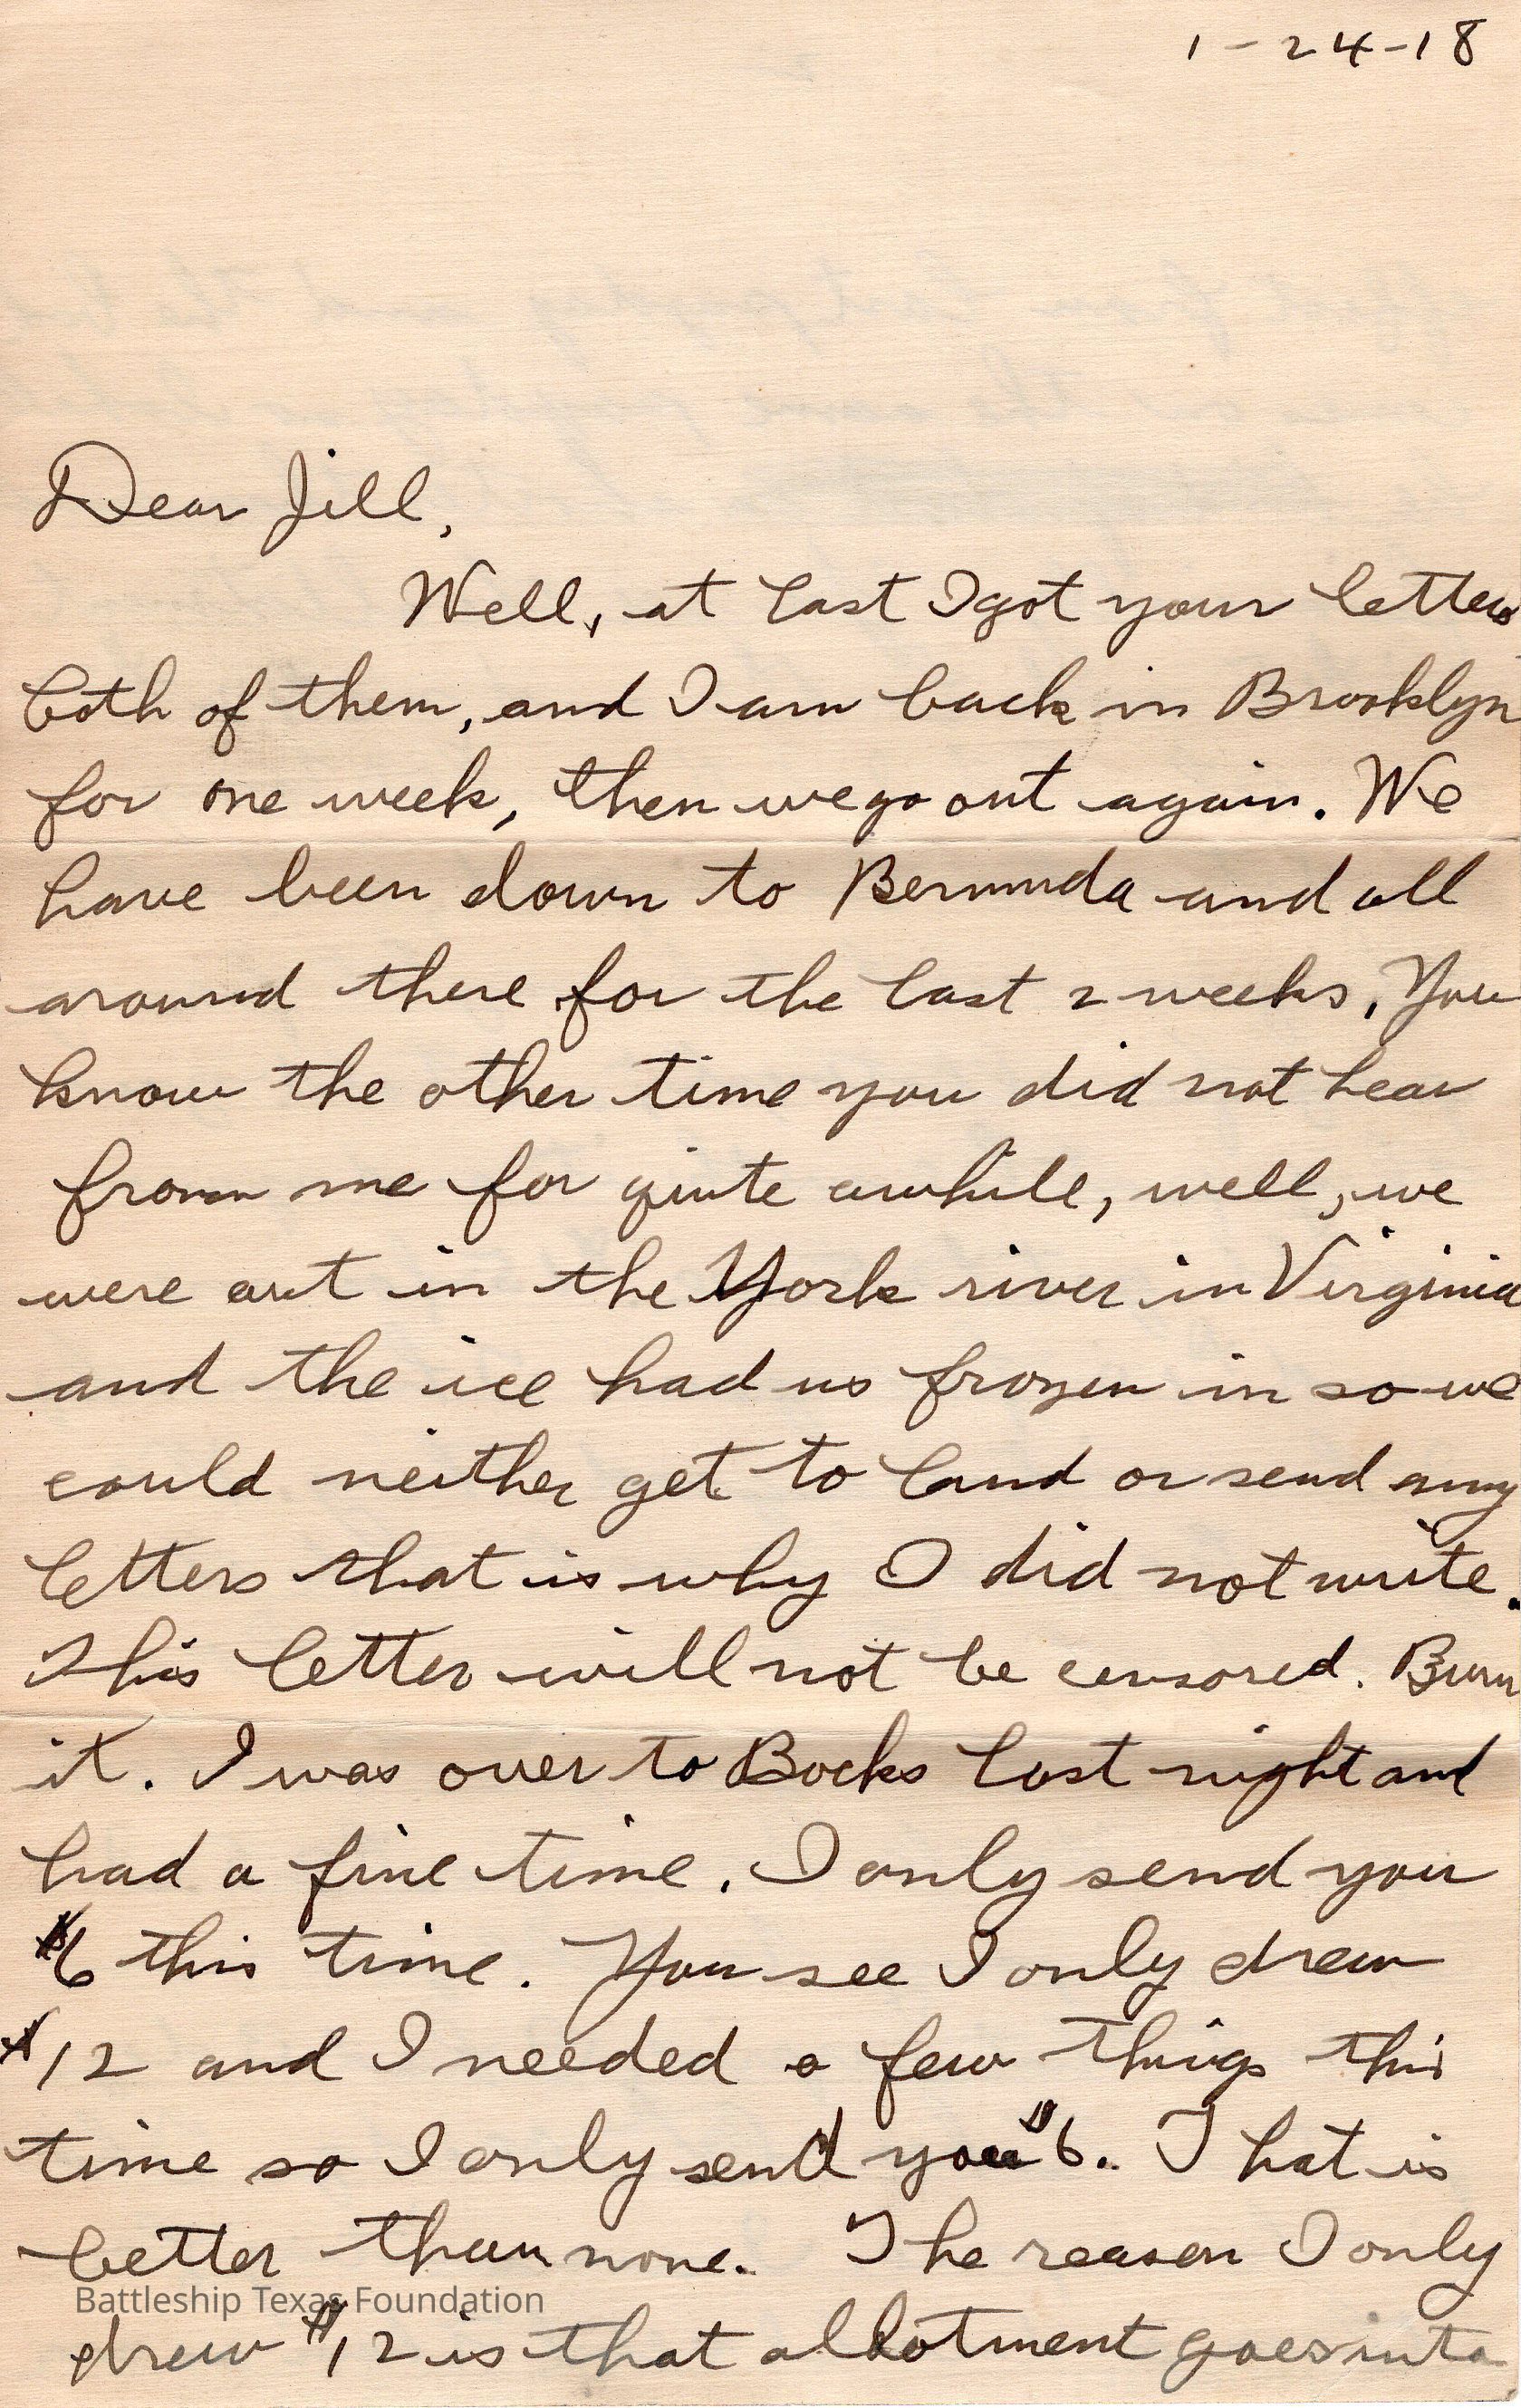 1-24-18
Dear Jill,
Well, at last I got your letters
both of them, and I am back in Brooklyn
for one week, then we go out again. We
have been down to Bermuda and all
around there for the last 2 weeks. You
know the other time you did not hear
from me for quite awhile, well, we
were out in the York river in Virginia
and the ice had us frozen in so we
could neither get to land or send any
letters that is why I did not write.
This letter will not be censored. Burn
it. I was over to Bocks last night and
had a fine time. I only send you
$6 this time. You see I only drew
$12 and I needed a few things this
time so I only send you $6. That is
better than none. The reason I only
Battleship Texas Foundation
drew $12 is that allotment goes into